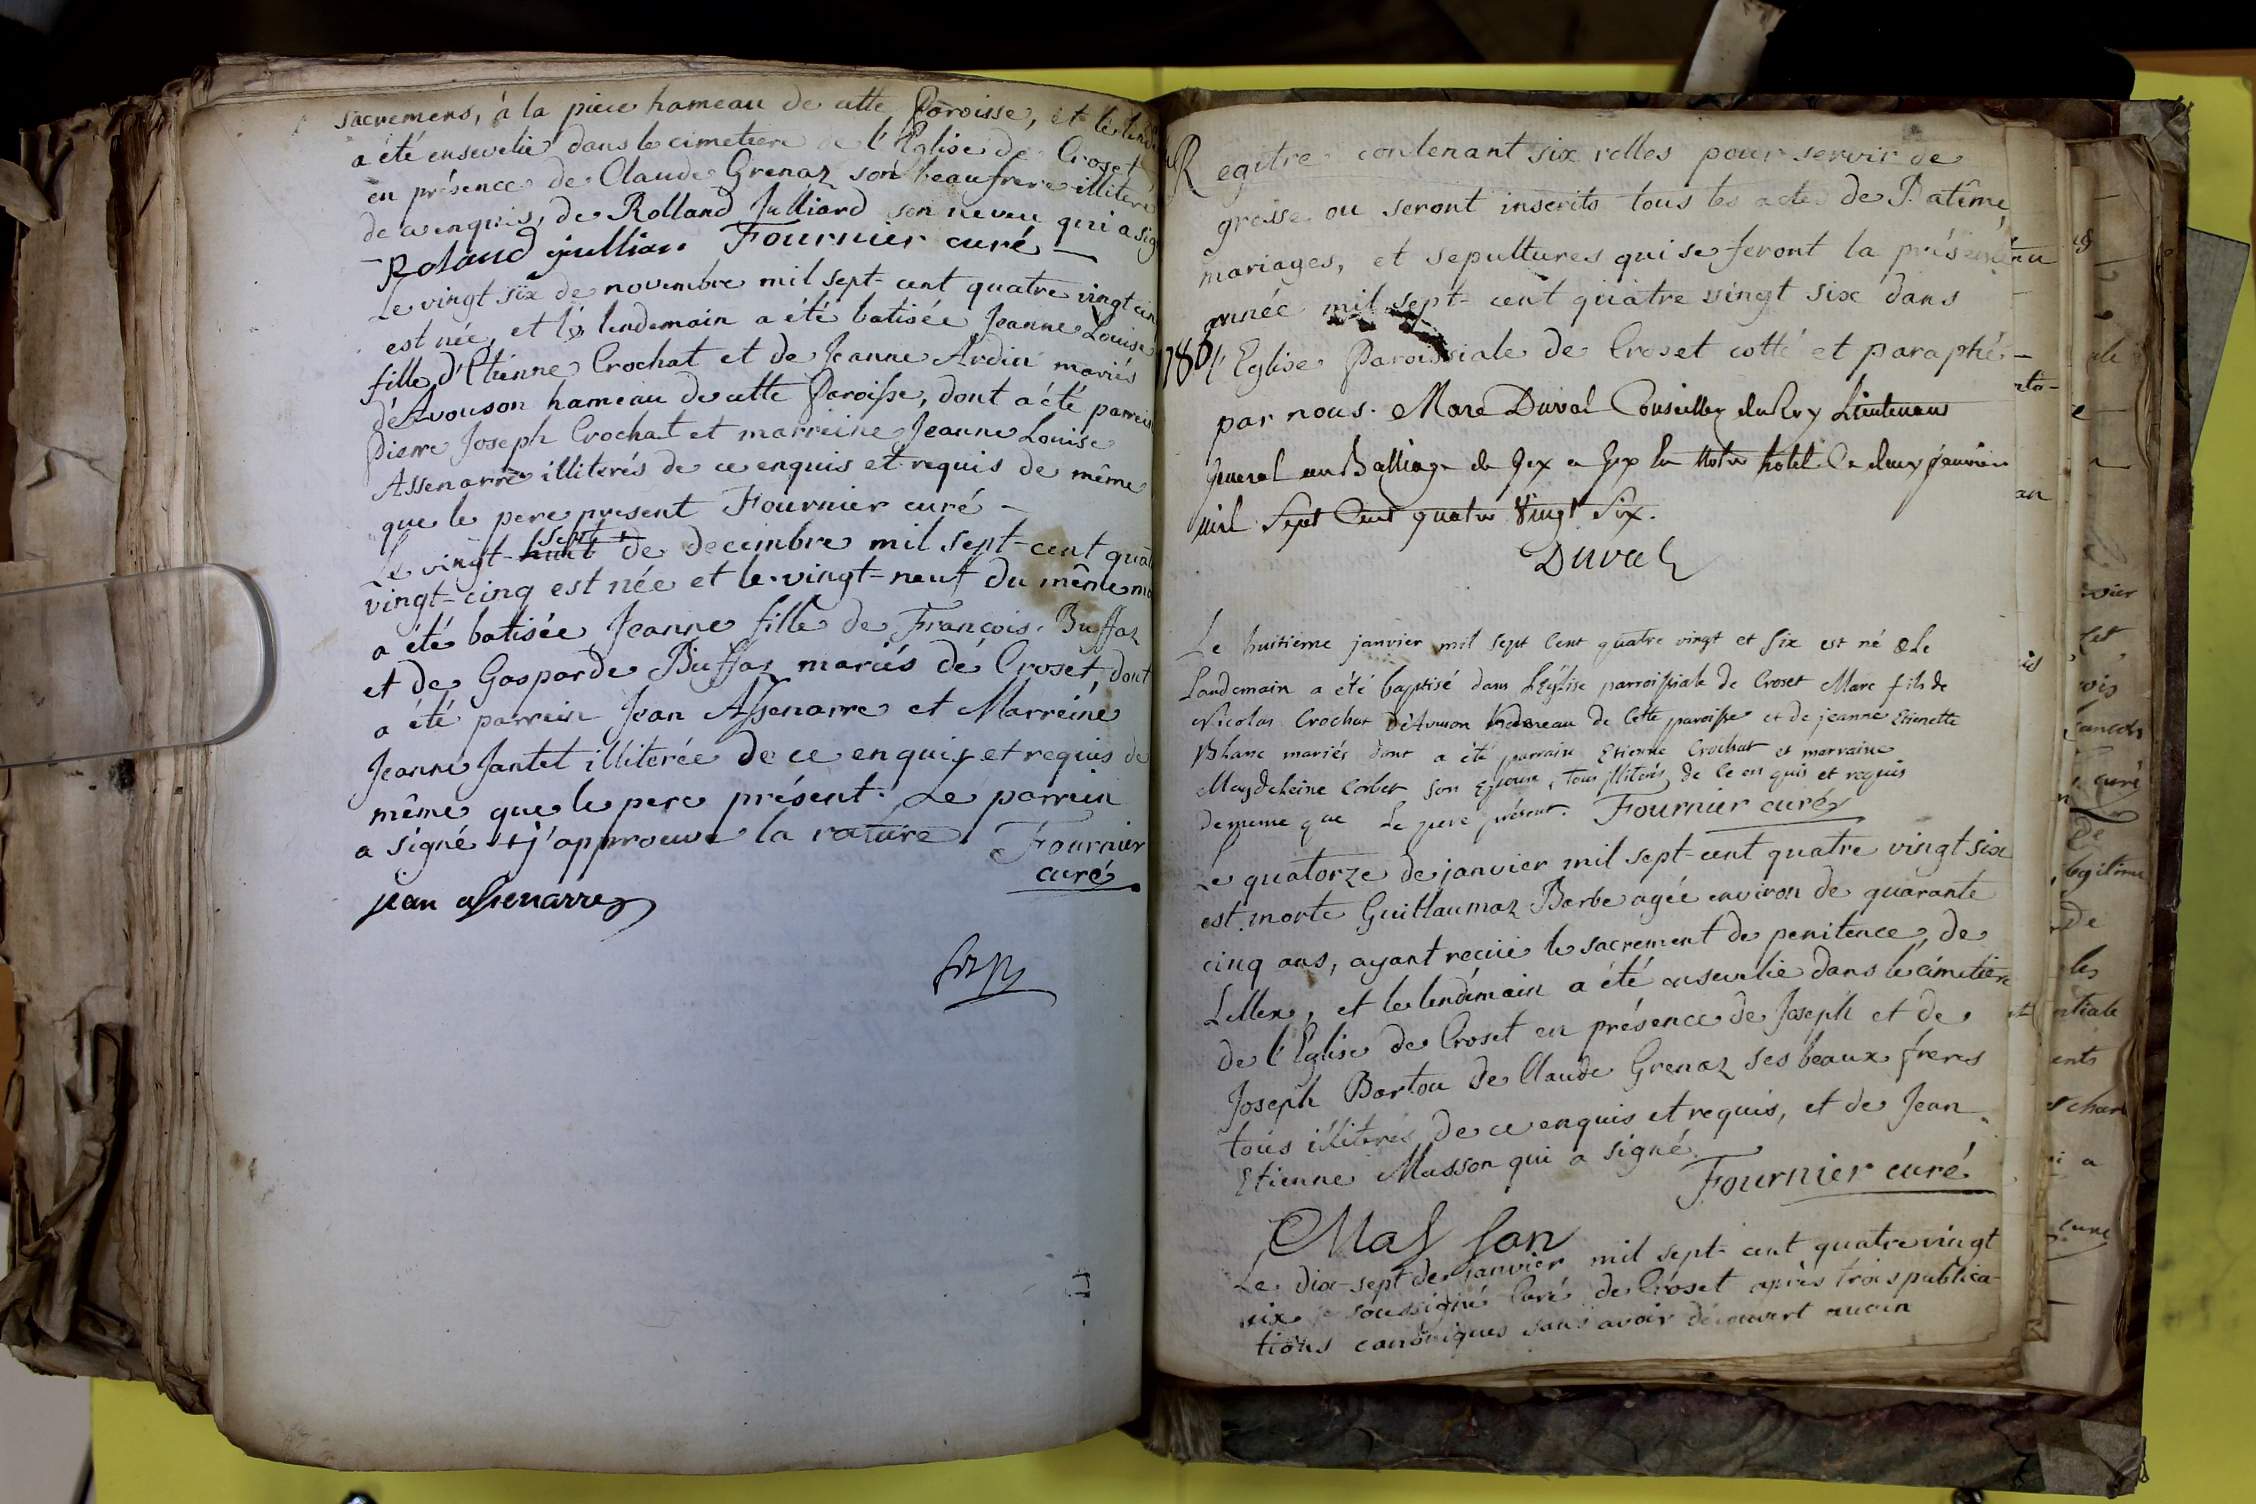 sacremens, à la piece hameau de cette Paroisse, et le lend
a été ensevelie dans le cimetiere de l'Eglise de Croset
en présence de Claude Grenaz son beaufrere illiteré
de ce enquis, de Rolland Julliard son neveu qui a sig
Roland jullian Fournier curé
Le vingt six de novembre mil sept-cent quatre vingt cin
est née, et le lendemain a été batisée Jeanne Louise
fille d'Etienne Crochat et de Jeanne Ardin mariés
d'Avouson hameau de cette Paroisse, dont a été parrein
Pierre Joseph Crochat et marreine Jeanne Louise
Assenarre illiterés de ce enquis et requis de même
que le pere present Fournier curé
sept
Le vingt-huit de decembre mil sept-cent quat
vingt-cinq est née et le vingt-neuf du même mo
a été batisée Jeanne fille de François Buffaz
et de Gasparde Buffaz mariés de Croset, dont
a été parrein Jean Assenarre et Marreine
Jeanne Jantet illiterée de ce enquis et requis de
même que le pere présent. Le parrein
a signé et j'approuve la rature. Fournier
curé
jean assenarre
Regitre contenant six rolles pour servir de
grosse ou seront inscrits tous les actes de Batême
mariages, et sepultures qui se feront la présente
année mil sept-cent quatre vingt six dans
1786
l'Eglise Paroissiale de Croset cotté et paraphé
par nous. Marc Duval Conseiller du Roy Lieutenant
General au Balliage de Gex a Gex En Notre hotel Ce deux janvier
mil Sept Cent quatre Vingt Six.
Duval
Le huitiéme janvier mil sept Cent quatre vingt et six est né & Le
Landemain a été baptisé dans L'Eglise parroissiale de Croset Marc fils de
Nicolas Crochat d'Avouson hameau de Cette paroisse et de jeanne Etienette
Blanc mariés dont a été parrain Etienne Crochat et marraine
Magdeleine Corbet son Epouse, tous illiterés de Ce en quis et requis
dememe que Le pere présent. Fournier curé
Le quatorze de janvier mil sept-cent quatre vingt six
est morte Guillaumaz Barbe agée environ de quarante
cinq ans, ayant recue le sacrement de penitence, de
Lellex, et le lendemain a été ensevelie dans le cimetiere
de l'Eglise de Croset en présence de Joseph et de
Joseph Bartou de Claude Grenaz ses beaux freres
tous illiterés de ce enquis et requis, et de Jean
Etienne Masson qui a signé.
Fournier curé
Masson
Le dix-sept de janvier mil sept-cent quatre vingt
six je soussigné Curé de Croset après trois publica-
tions canoniques sans avoir découvert aucun